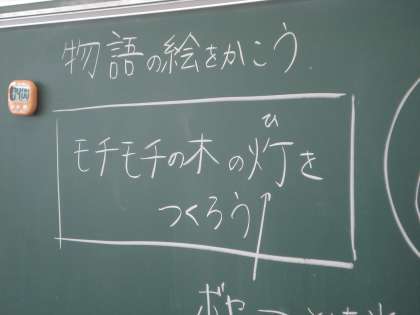 物語の絵をかこう
モチモチの木の灯を
ひ
つくろう